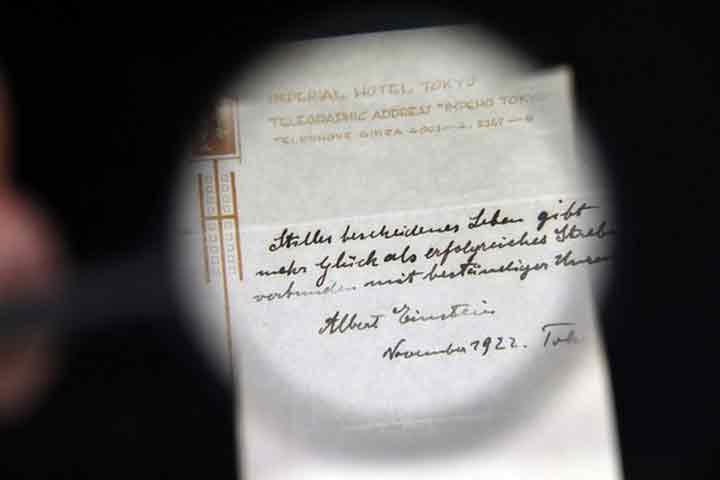 IMPERIAL HOTEL TOKYO
TELEGRAPHIC ADDRESS "IMPEHO TOKYO
TELEPHONE GINZA
Stilles bescheidenes Leben gibt
mehr Glück als erfolgreiches Streben
verbunden mit beständiger Unru
Albert Einstein
November 1922. Tok